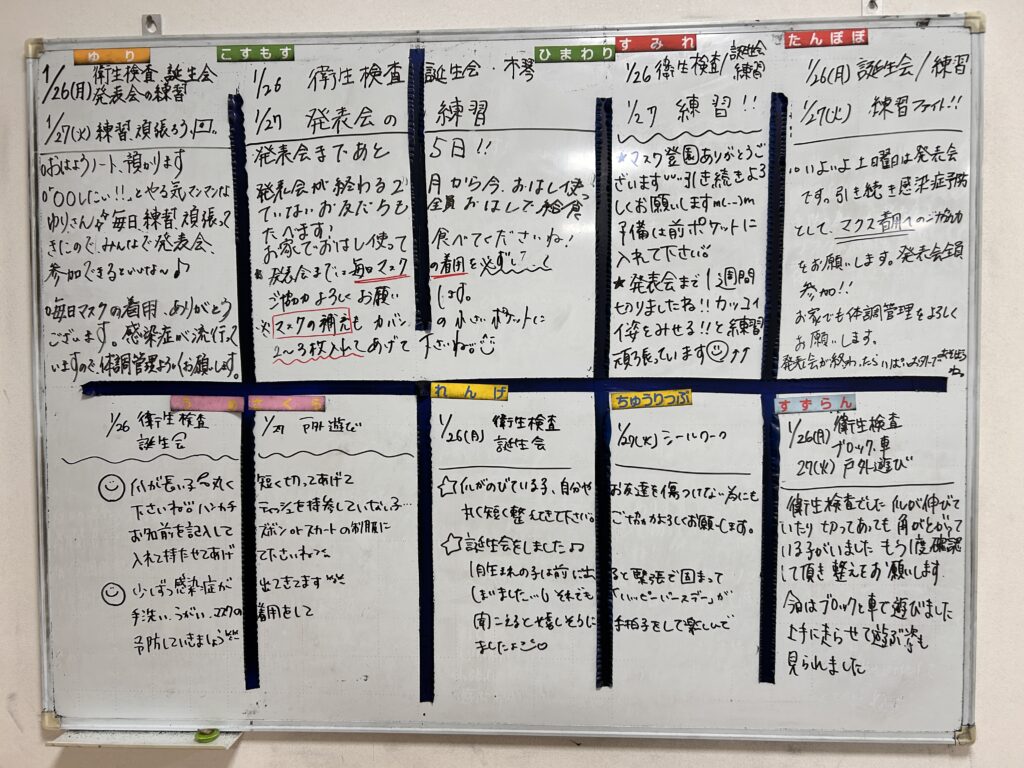 ゆり
1/26(月) 衛生検査 誕生会
発表会の練習
1/27(火) 練習、頑張ろう
おはようノート、預かります
"〇〇しにい!!"とやる気マンマンな
ゆりさん 毎日、練習、頑張って
きたので、みんなで発表会、
参加できるといいな〜♪
毎日マスクの着用、ありがとう
ございます。感染症が流行って
いますので、体調管理よろしくお願いします。
こすもす ひまわり
1/26 衛生検査 誕生会・木琴
1/27 発表会の 練習
発表会まであと 5日!!
発表会が終わる2月から今、おはし使っ
ていないお友だちも全員おはしで給食
たべます!
お家でおはし使って 食べてくださいね!
発表会までは毎日マスクの着用を必ず
ご協力よろしくお願い します。
※マスクの補充も カバンの小さいポケットに
2〜3枚入れてあげて 下さいね。
すみれ
1/26 衛生検査/誕生会 練習
1/27 練習!!
★マスク登園ありがとうご
ざいます 引き続きよろ
しくお願いしますm(--)m
予備は前ポケットに
入れて下さい。
★発表会まで1週間
切りましたね!!カッコイ
イ姿をみせる!!と練習
頑張っています ↑↑
たんぽぽ
1/26(月) 誕生会/練習
1/27(火) 練習ファイト!!
いよいよ土曜日は発表会
です。引き続き感染症予防
として、マクス着用へのご協力
をお願いします。発表会全員
参加!!
お家でも体調管理をよろしく
お願いします。
発表会が終わったらいっぱい
さくら
1/26 衛生検査 1/27 戸外遊び
誕生会
爪が長い子 丸く短く切ってあげて
下さいね ハンカチティッシュを持参していない子…
お名前を記入してズボンorスカートの制服に
入れて持たせてあげて下さいねっ。
少しずつ感染症が出てきてます
手洗い、うがい、マスクの着用をして
予防していきましょう
れんげ ちゅうりっぷ
1/26(月) 衛生検査 1/27(火) シールワーク
誕生会
☆爪がのびている子、自分やお友達を傷つけない為にも
丸く短く整えてきて下さい。ご協力よろしくお願いします。
☆誕生会をしました♪
1月生まれの子は前に出ると緊張で固まって
しまいました…しかしそれでも"ハッピーバースデー"が
聞こえると嬉しそうに手拍子をして楽しんで
ましたよ
すずらん
1/26(月) 衛生検査
ブロック、車
27(火) 戸外遊び
衛生検査でした 爪が伸びて
いたり切ってあっても角がとがって
いる子がいました もう1度確認
して頂き整えをお願いします
今日はブロックと車で遊びました
上手に走らせて遊ぶ姿も
見られました